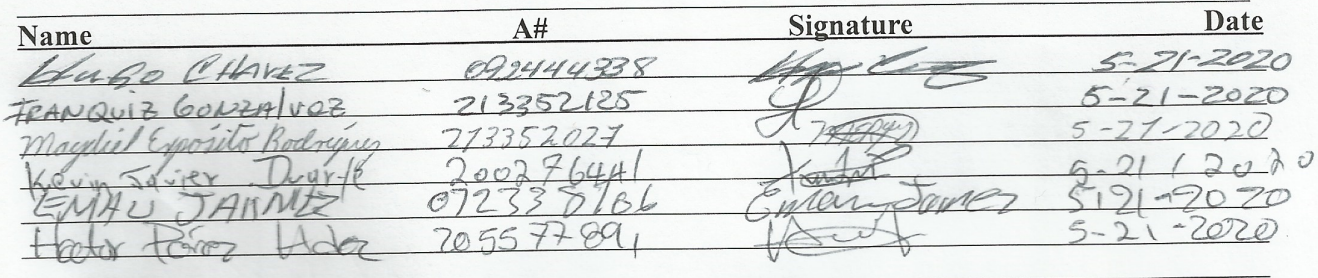 Name A# Signature Date
Hugo CHAVEZ 092444338 5-21-2020
FRANQUIZ GONZAlVOZ 213352125 5-21-2020
Maydiel Expósito Rodríguez 213352027 5-21-2020
Kevin Javier Duarte 200276441 5-21/2020
JAIMEZ 072338166 5-21-2020
Hector Pérez 205577891 5-21-2020